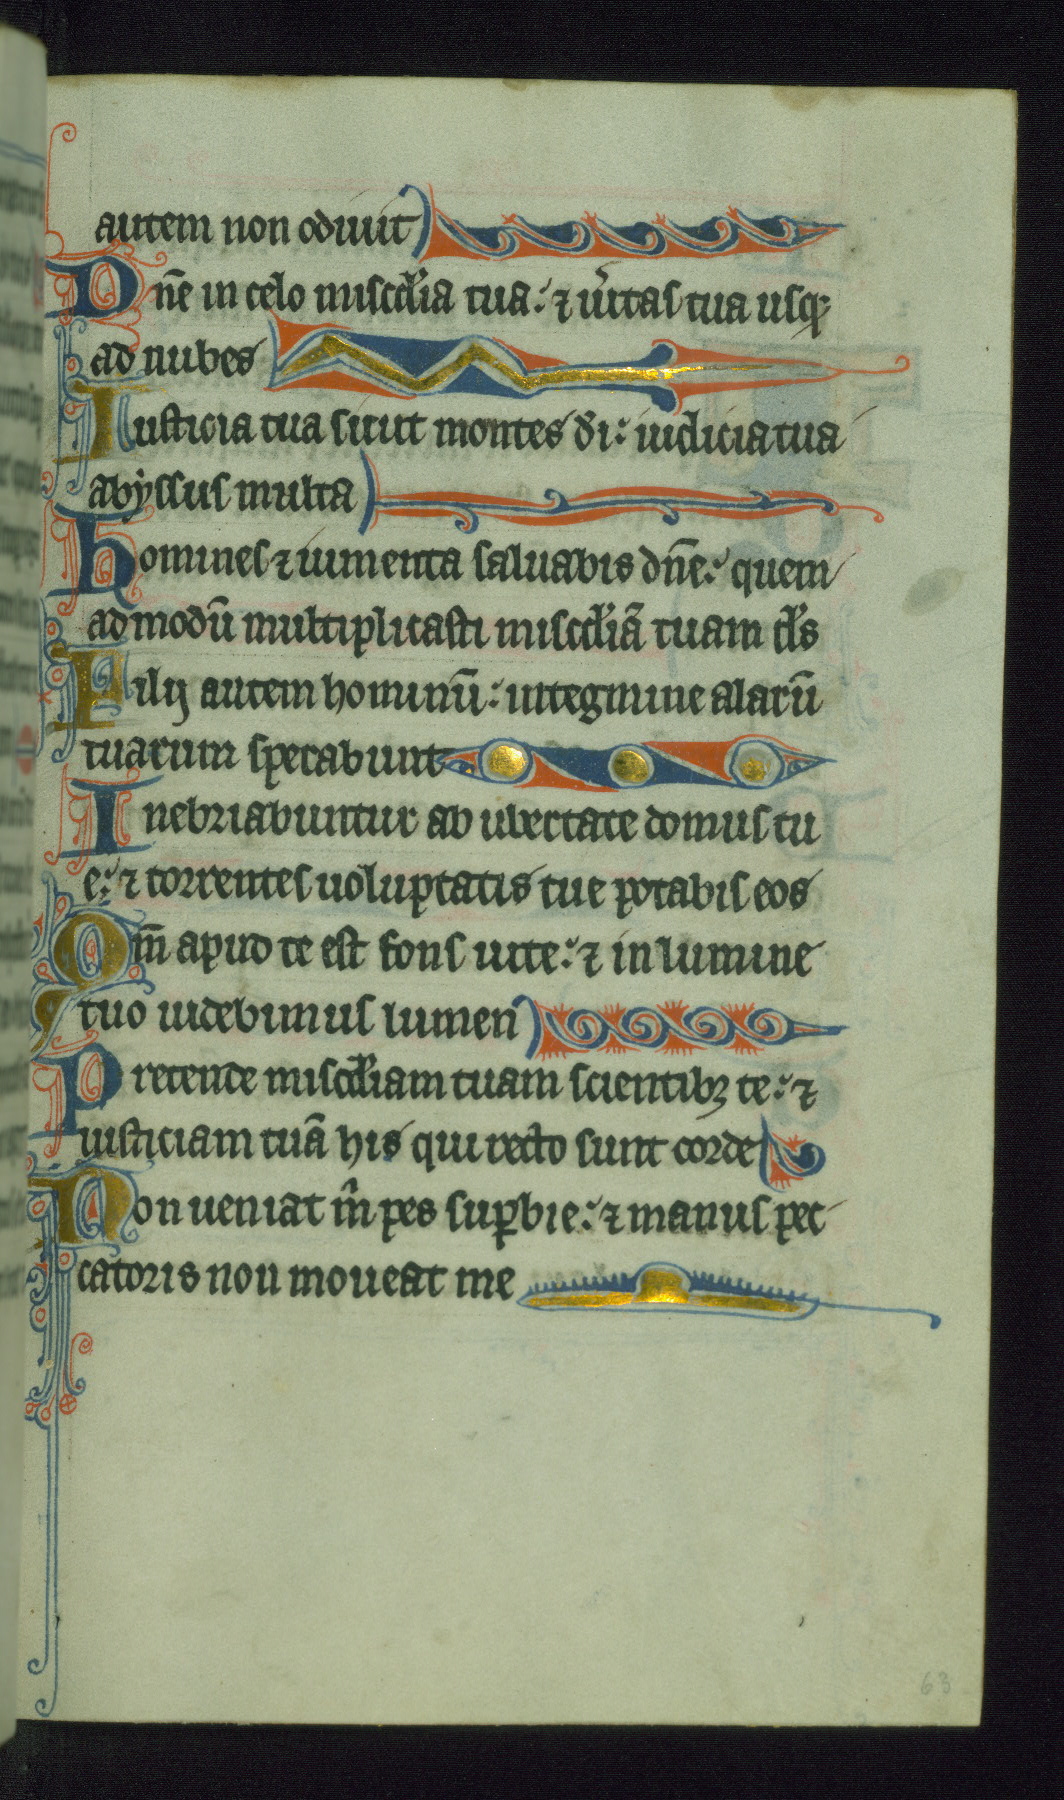 autem non odiuit
Dn̄e in celo miscd̕ia tua: ⁊ ũitas tua usq;
ad nubes
Iusticia tua sicut montes di: iudicia tua
abẏssus multa
Homines ⁊ iumenta saluabis dn̄e: quem
admodū multiplicasti miscd̕iā tuam d̕s
Filij autem hominū: in tegmine alarū
tuarum sperabunt
Inebriabuntur ab ubertate domus tu
e: ⁊ torrentes uoluptatis tue potabis eos
Qm̄ apud te est fons uite: ⁊ in lumine
tuo uidebimus lumen
Pretende miscd̕iam tuam scientibꝫ te: ⁊
iusticiam tuā his qui recto sunt corde
Non ueniat m̄ pes suꝑbie: ⁊ manus pec
catoris non moueat me
63